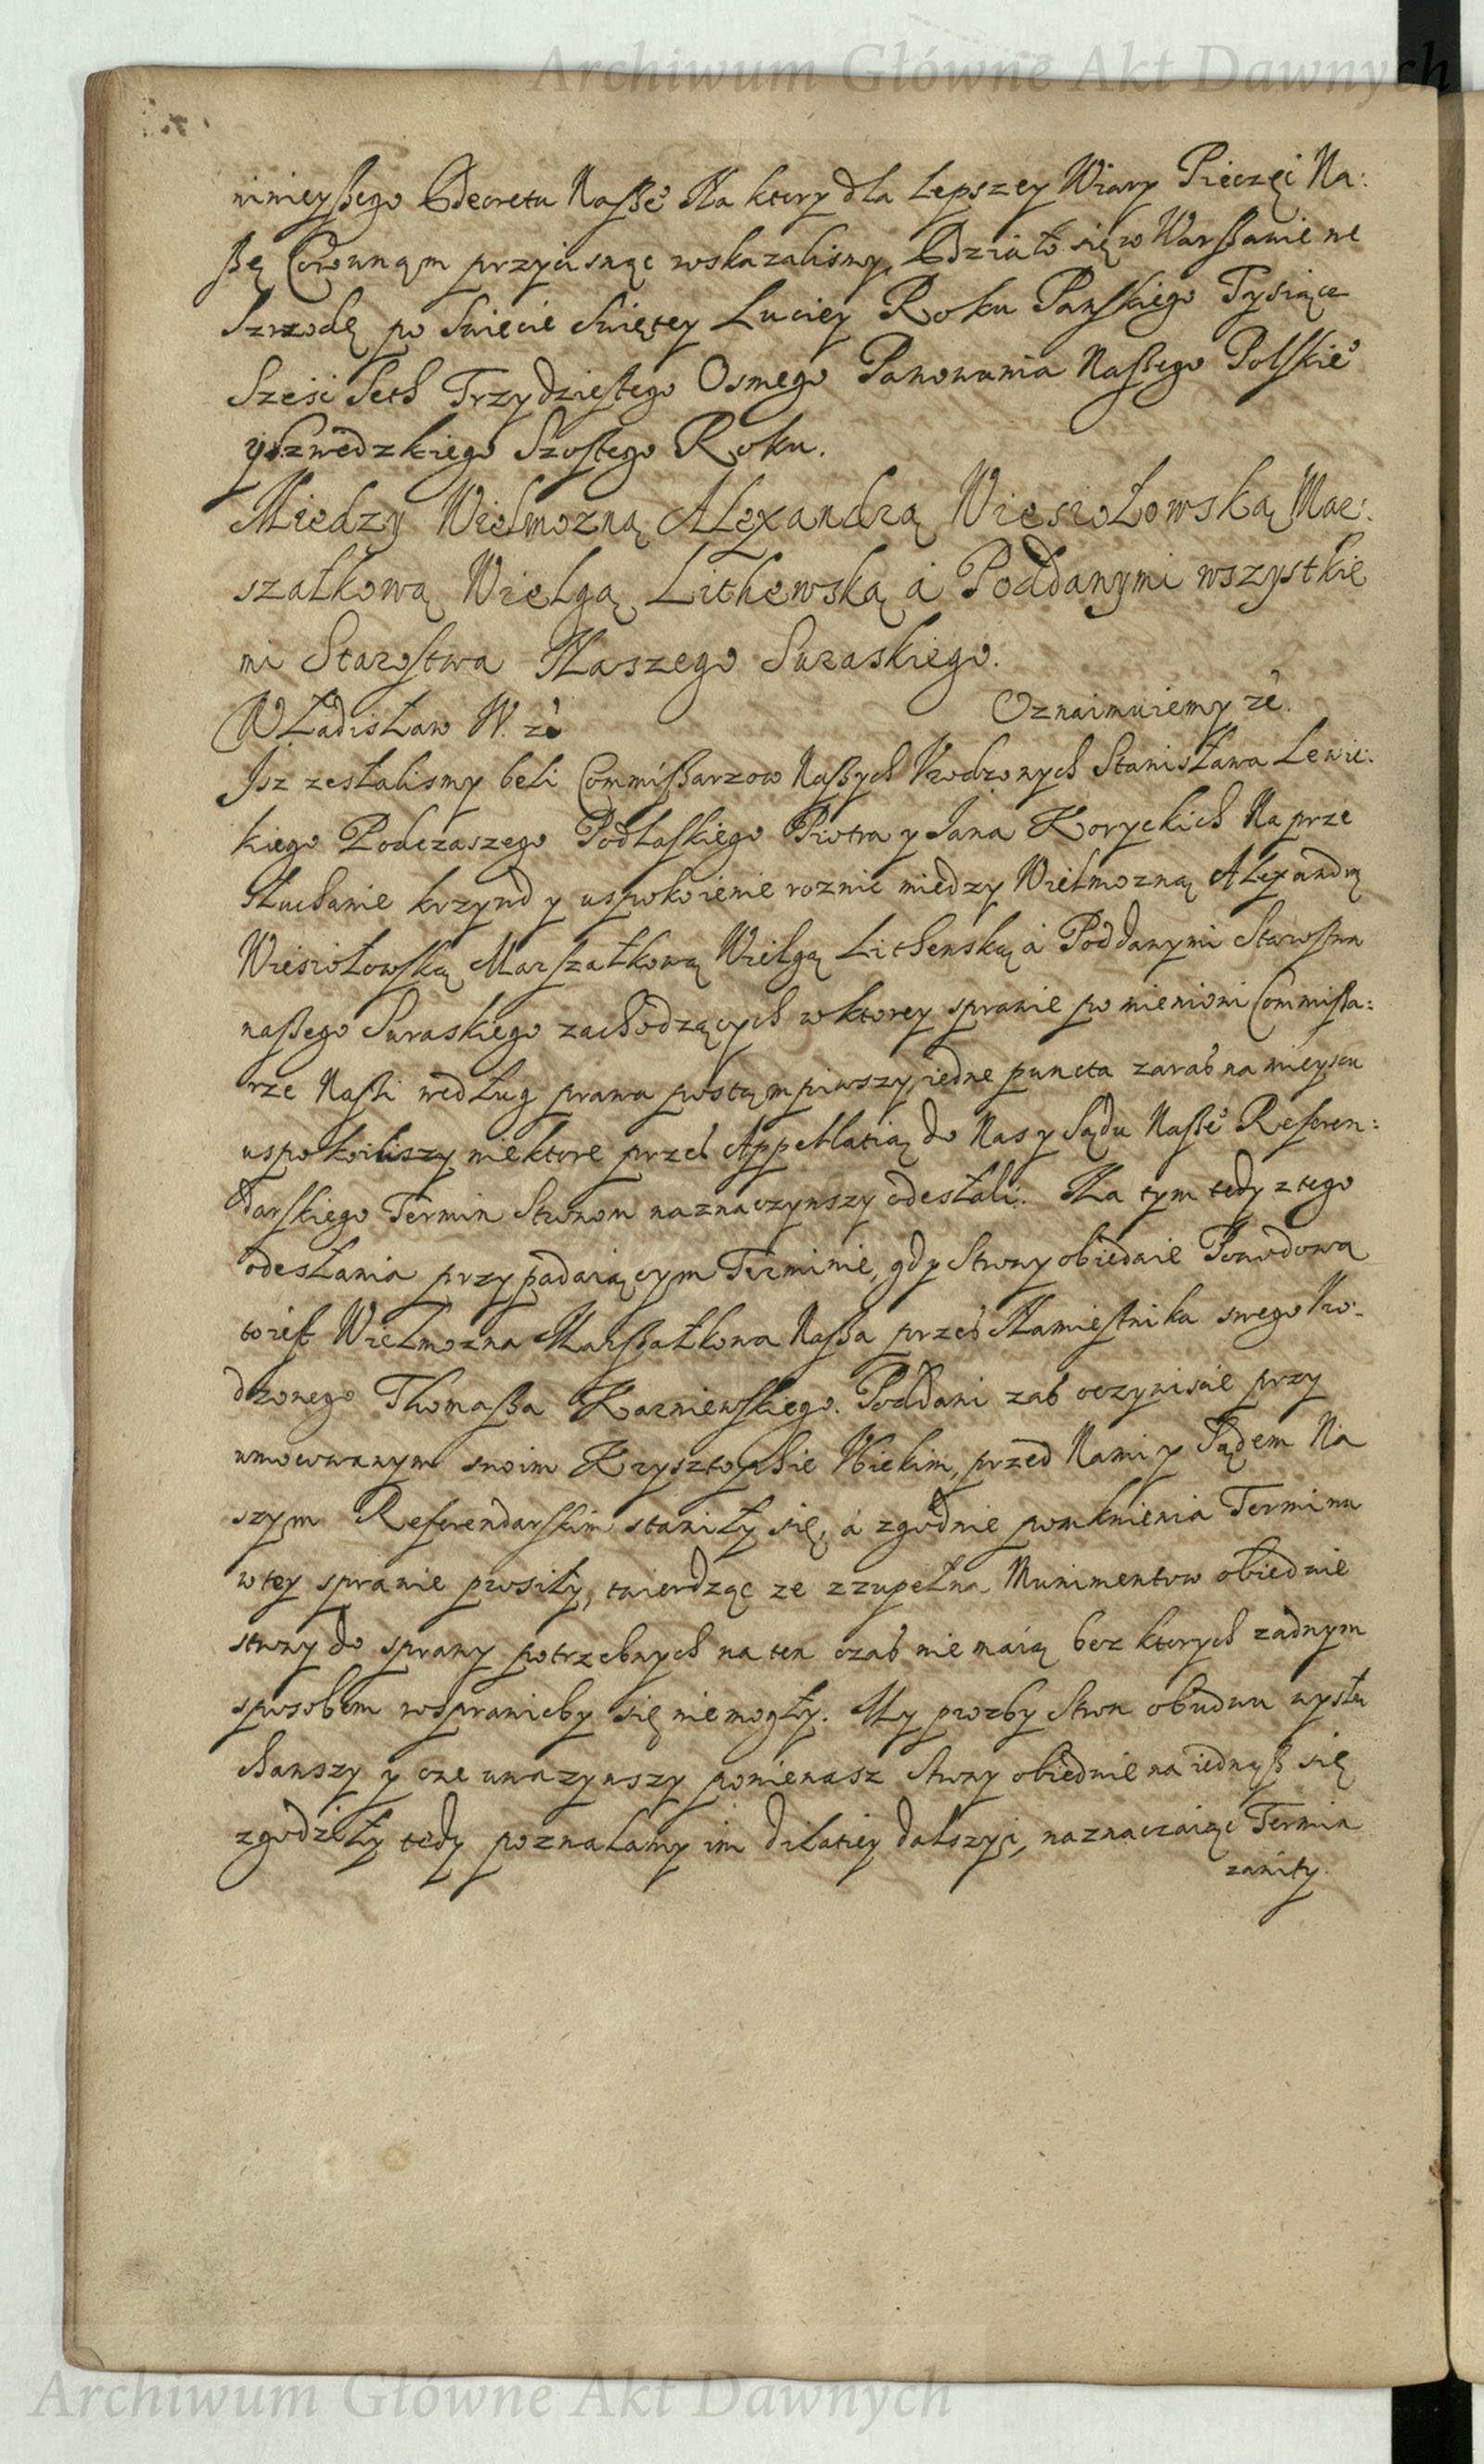 Archiwum Główne Akt Dawnych
ninieyßego Decretu Naßeº Na ktory dla Lepszey Wiary Pieczęć Na:
ßę Coronnąm przycisnąc wskazalismy. Działo się w Warßawie we
Szrzodę po Swięcie Swiętey Luciey Roku Panskiego Tysiące
Sześć Seth Trzydziestego Osmego Panowania Naßego Polskieº
y Szwedzkiego Szostego Roku.
Miedzy Wielmozną Alexandrą Wiesiołowską Mar:
szałkową Wielgą Lithewską á Poddanymi wszystkie
mi Starostwa Naszego Suraskiego.
Władisław IV. zº
Oznaimuiemy zº.
Isz zesłalismy beli Commißarzow Naßych Vrodzonych Stanisława Lewic:
kiego Podczaszego Podlaskiego Piotra y Jana Koryckich Na prze
słuchanie krzywd y uspokoienie roznic miedzy Wielmozną Alexandrą
Wiesiołowską Marszałkową Wielgą Lithewską á Poddanymi Starostwa
naßego Suraskiego zachodzących w ktorey sprawie pomienioni Commißa:
rze Naßi według prawa postąmpiwszy, iedne puncta zaras na mieyscu
uspokoiliszy niektore przes Appellatią do Nas y Sądu Naßeº Referen:
darskiego Termin Stronom naznaczywszy odesłali. Na tym tedy z tego
odesłania przypadaiącym Terminie, gdy Strony obiedwie Powodowa
to iest Wielmozna Marßałkowa Naßa przes Namiestnika swego Vro:
dzonego Thomaßa Karniewskiego. Poddani zas oczywisie przy
umocowanym swoim Krzysztophie Wilkim, przed Nami y Sądem Na
szym Referendarskim stawiły się, á zgodnie pomknienia Terminu
w tey sprawie prosiły, twierdząc ze zzupełna Munimentow obiedwie
strony do sprawy potrzebnych na ten czas nie maią bez ktorych zadnym
sposobem wsprawicby się nie mogły. My prozby Stron obudwu wysłu
chawszy y one uwazywszy poniewasz Strony obiedwie na iednyß się
zgodziły tedy pozwalamy im dilatiey dalszyi, naznaczaiąc Termin
zawity.
Archiwum Główne Akt Dawnych